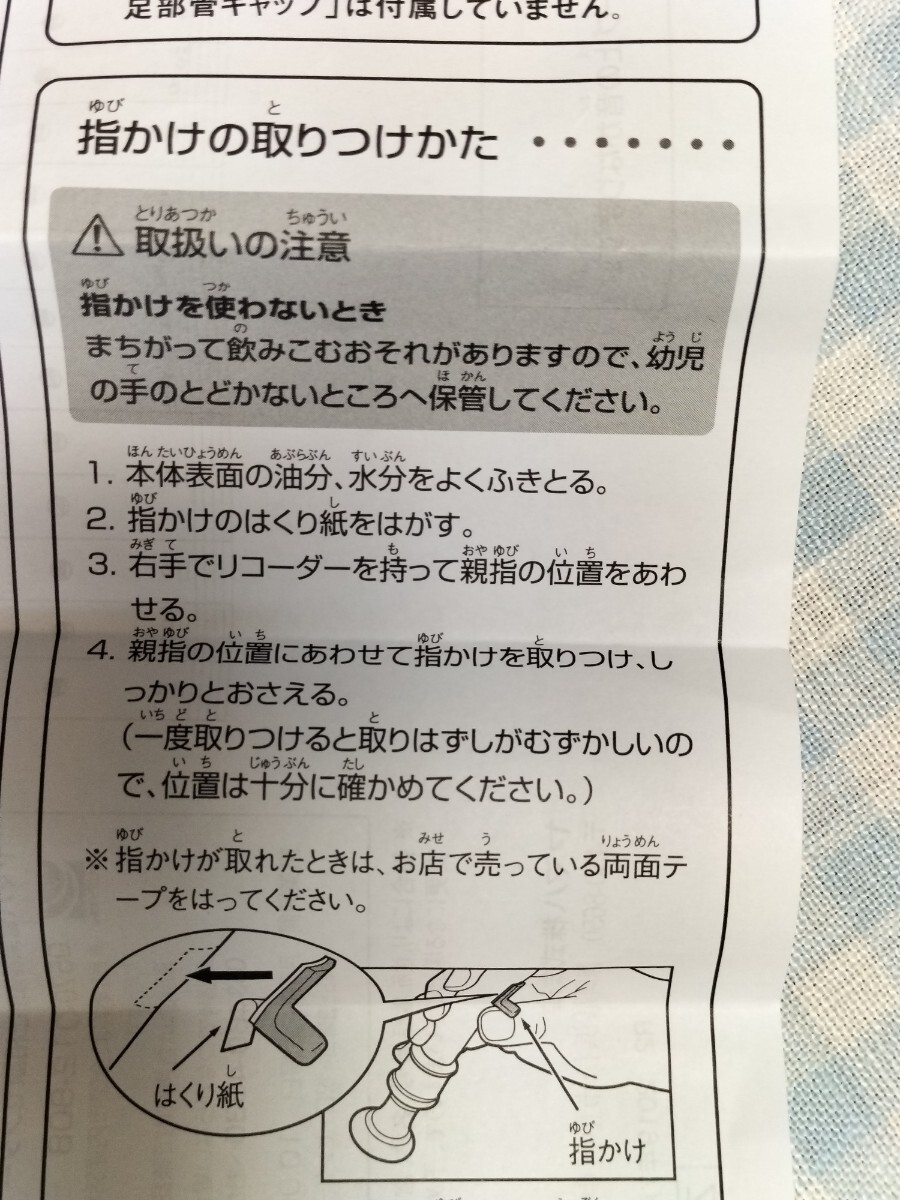 足部管キャップ」は付属していません。
指かけの取りつけかた ・・・・・・・
取扱いの注意
指かけを使わないとき
まちがって飲みこむおそれがありますので、幼児
の手のとどかないところへ保管してください。
1. 本体表面の油分、水分をよくふきとる。
2. 指かけのはくり紙をはがす。
3. 右手でリコーダーを持って親指の位置をあわ
せる。
4. 親指の位置にあわせて指かけを取りつけ、し
っかりとおさえる。
(一度取りつけると取りはずしがむずかしいの
で、位置は十分に確かめてください。)
※指かけが取れたときは、お店で売っている両面テ
ープをはってください。
はくり紙
指かけ